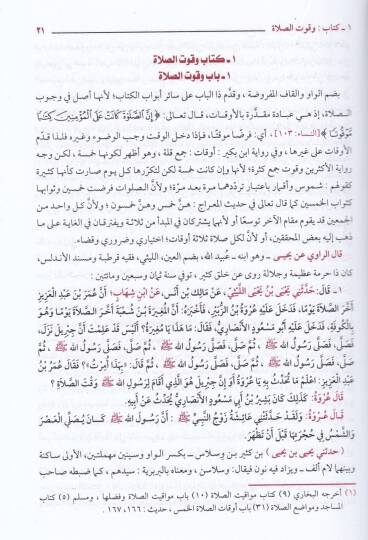 ١ ـ كتاب : وقوت الصلاة ٢١
١ ـ كتاب وقوت الصلاة
١ ـ باب وقوت الصلاة
بضم الواو والقاف المفروضة، وقدَّم ذا الباب على سائر أبواب الكتاب؛ لأنها أصل في وجوب
الصلاة، إذ هي عبادة مقدَّرة بالأوقات، قال تعالى: ﴿إِنَّ الصَّلَاةَ كَانَتْ عَلَى الْمُؤْمِنِينَ كِتَابًا
مَوْقُوتًا﴾ [النساء: ١٠٣]، أي: فرضًا موقتًا، فإذا دخل الوقت وجب الوضوء وغيره، فلذا قدَّم
الأوقات على غيرها، وفي رواية ابن بكير: أوقات: جمع قلة، وهو أظهر لكونها خمسة، لكن وجه
رواية الأكثرين وقوت جمع كثرة؛ لأنها وإن كانت خمسة لكن لتكررها كل يوم صارت كأنها كثيرة
كقولهم: شموس وأقمار باعتبار ترددهما مرة بعد مرة؛ ولأنَّ الصلوات فرضت خمسين وثوابها
كثواب الخمسين كما قال تعالى في حديث المعراج: هنَّ خمس وهنَّ خمسون؛ ولأنَّ كل واحد من
الجمعين قد يقوم مقام الآخر توسعًا أو لأنهما يشتركان في المبدأ من ثلاثة ويفترقان في الغاية على ما
ذهب إليه بعض المحققين، أو لأنَّ لكل صلاة ثلاثة أوقات: اختياري وضروري وقضاء.
قال الراوي عن يحيى ـ وهو ابنه ـ عُبيد الله، بضم العين، الليثي، فقيه قرطبة ومسند الأندلس،
كان ذا حرمة عظيمة وجلالة روى عن خلق كثير، توفي سنة ثمان وسبعين ومائتين:
١ ـ قَالَ: حَدَّثَنِي يَحْيَى بْنُ يَحْيَى اللَّيْثِيُّ، عَنْ مَالِكِ بْنِ أَنَسٍ، عَنْ ابْنِ شِهَابٍ؛ أَنَّ عُمَرَ بْنَ عَبْدِ الْعَزِيزِ
أَخَّرَ الصَّلَاةَ يَوْمًا، فَدَخَلَ عَلَيْهِ عُرْوَةُ بْنُ الزُّبَيْرِ، فَأَخْبَرَهُ: أَنَّ الْمُغِيرَةَ بْنَ شُعْبَةَ أَخَّرَ الصَّلَاةَ يَوْمًا، وَهُوَ
بِالْكُوفَةِ، فَدَخَلَ عَلَيْهِ أَبُو مَسْعُودٍ الأَنْصَارِيُّ، فَقَالَ: مَا هَذَا يَا مُغِيرَةُ؟ أَلَيْسَ قَدْ عَلِمْتَ أَنَّ جِبْرِيلَ نَزَلَ،
فَصَلَّى، فَصَلَّى رَسُولُ اللهِ ﷺ، ثُمَّ صَلَّى، فَصَلَّى رَسُولُ اللهِ ﷺ، ثُمَّ صَلَّى، فَصَلَّى رَسُولُ اللهِ ﷺ، ثُمَّ
صَلَّى، فَصَلَّى رَسُولُ اللهِ ﷺ، ثُمَّ صَلَّى، فَصَلَّى رَسُولُ اللهِ ﷺ، ثُمَّ قَالَ: «بِهَذَا أُمِرْتُ»؟ فَقَالَ عُمَرُ بْنُ
عَبْدِ الْعَزِيزِ: اعْلَمْ مَا تُحَدِّثُ بِهِ يَا عُرْوَةُ أَوَ إِنَّ جِبْرِيلَ هُوَ الَّذِي أَقَامَ لِرَسُولِ اللهِ ﷺ وَقْتَ الصَّلَاةِ؟
قَالَ عُرْوَةُ: كَذَلِكَ كَانَ بَشِيرُ بْنُ أَبِي مَسْعُودٍ الأَنْصَارِيُّ يُحَدِّثُ عَنْ أَبِيهِ.
قَالَ عُرْوَةُ: وَلَقَدْ حَدَّثَتْنِي عَائِشَةُ زَوْجُ النَّبِيِّ ﷺ: أَنَّ رَسُولَ اللهِ ﷺ، كَانَ يُصَلِّي الْعَصْرَ
وَالشَّمْسُ فِي حُجْرَتِهَا قَبْلَ أَنْ تَظْهَرَ.
(حدثني يحيى بن يحيى) بن كثير بن وسلاس ـ بكسر الواو وسينين مهملتين، الأولى ساكنة
وبينهما لام ألف ـ ويزاد فيه نون فيقال: وسلاسن، ومعناه بالبربرية: سيدهم، كما ضبطه صاحب
(١) أخرجه البخاري (٩) كتاب مواقيت الصلاة (١٠) باب مواقيت الصلاة وفضلها، ومسلم (٥) كتاب
المساجد ومواضع الصلاة (٣١) باب أوقات الصلاة الخمس، حديث: ١٦٦، ١٦٧.